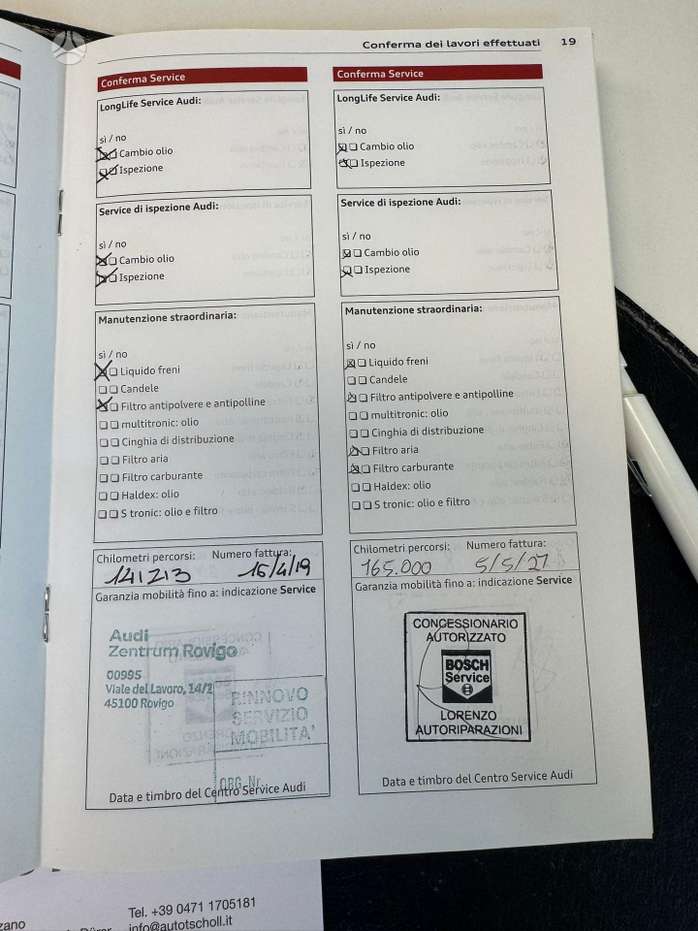 Conferma dei lavori effettuati 19
Conferma Service
LongLife Service Audi:
sì / no
Cambio olio
Ispezione
Service di ispezione Audi:
sì / no
Cambio olio
Ispezione
Manutenzione straordinaria:
sì / no
Liquido freni
Candele
Filtro antipolvere e antipolline
multitronic: olio
Cinghia di distribuzione
Filtro aria
Filtro carburante
Haldex: olio
S tronic: olio e filtro
Chilometri percorsi: Numero fattura:
141213 15/4/19
Garanzia mobilità fino a: indicazione Service
Audi
Zentrum Rovigo
00995
Viale del Lavoro, 14/2
45100 Rovigo
RINNOVO
SERVIZIO
MOBILITA'
ORG. Nr.
Data e timbro del Centro Service Audi
Conferma Service
LongLife Service Audi:
sì / no
Cambio olio
Ispezione
Service di ispezione Audi:
sì / no
Cambio olio
Ispezione
Manutenzione straordinaria:
sì / no
Liquido freni
Candele
Filtro antipolvere e antipolline
multitronic: olio
Cinghia di distribuzione
Filtro aria
Filtro carburante
Haldex: olio
S tronic: olio e filtro
Chilometri percorsi: Numero fattura:
165.000 5/5/21
Garanzia mobilità fino a: indicazione Service
CONCESSIONARIO
AUTORIZZATO
BOSCH
Service
LORENZO
AUTORIPARAZIONI
Data e timbro del Centro Service Audi
Tel. +39 0471 1705181
info@autotscholl.it